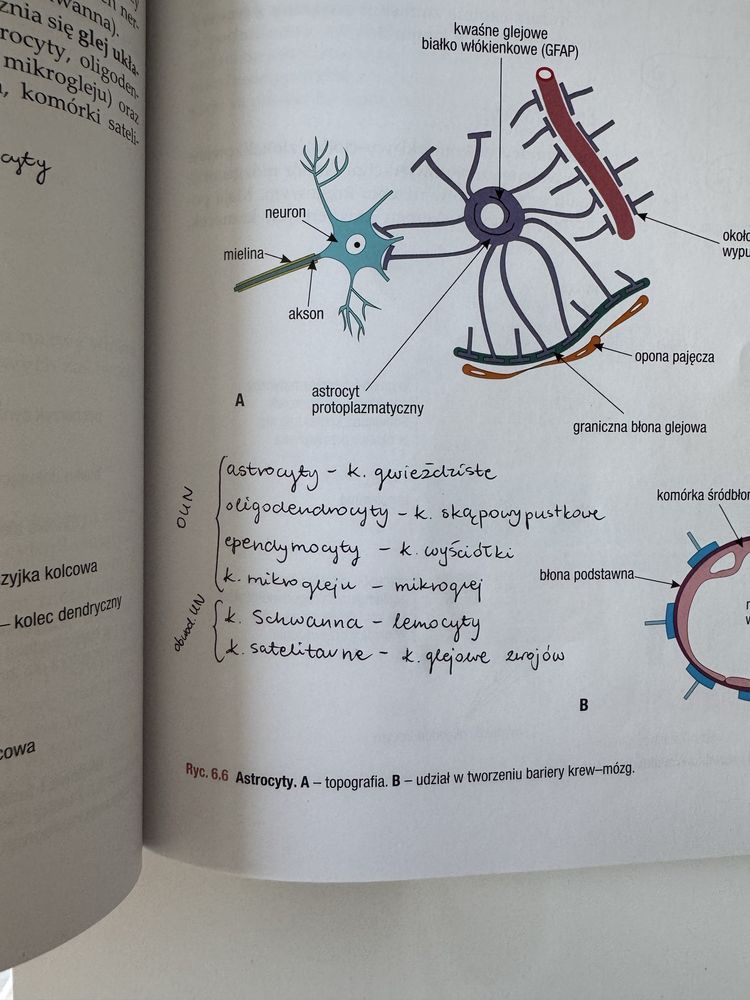 wanna).
znia się glej ukła-
rocyty, oligoden-
mikrogleju) oraz
komórki sateli-
cyty
zyjka kolcowa
– kolec dendryczny
cowa
kwaśne glejowe
białko włókienkowe (GFAP)
neuron
mielina
akson
około
wypu
opona pajęcza
astrocyt
protoplazmatyczny
graniczna błona glejowa
A
OUN
astrocyty – k. gwieździste
oligodendrocyty – k. skąpowypustkowe
ependymocyty – k. wyściółki
k. mikrogleju – mikroglej
obwod. UN
k. Schwanna – lemocyty
k. satelitarne – k. glejowe zwojów
komórka śródbło
błona podstawna
B
Ryc. 6.6 Astrocyty. A – topografia. B – udział w tworzeniu bariery krew–mózg.